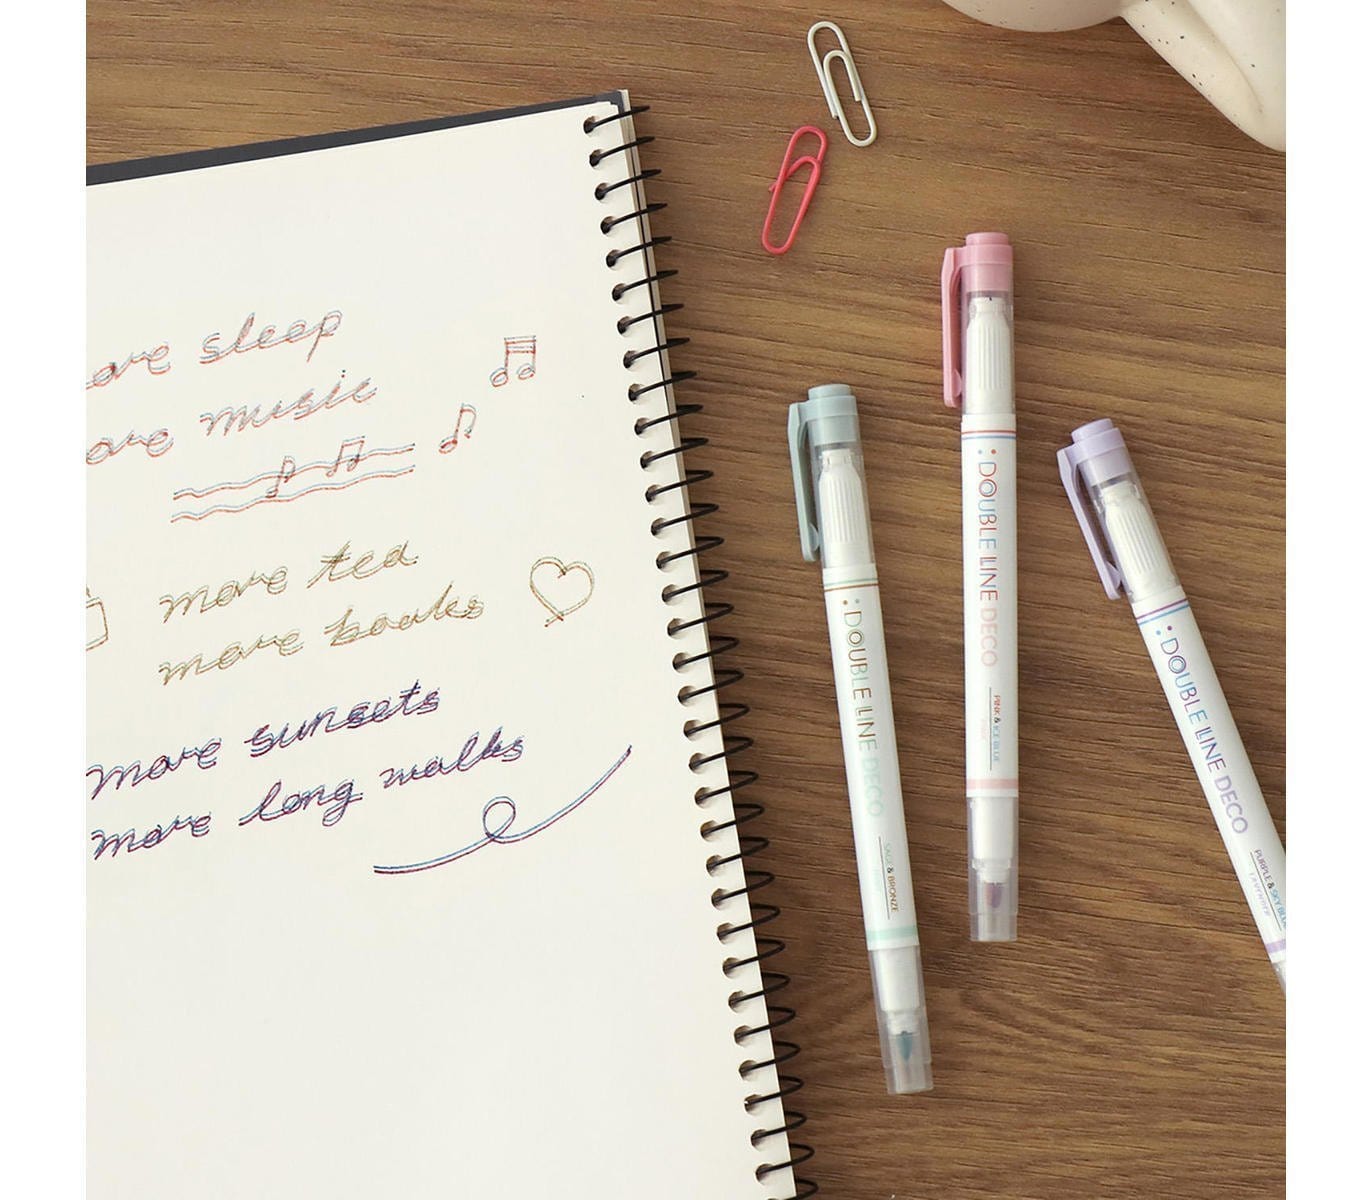 more sleep
more music
more tea
more books
more sunsets
more long walks
DOUBLE LINE DECO
SAGE & BRONZE
DOUBLE LINE DECO
PINK & ICE BLUE
DOUBLE LINE DECO
PURPLE & SKY BLUE
Lavender